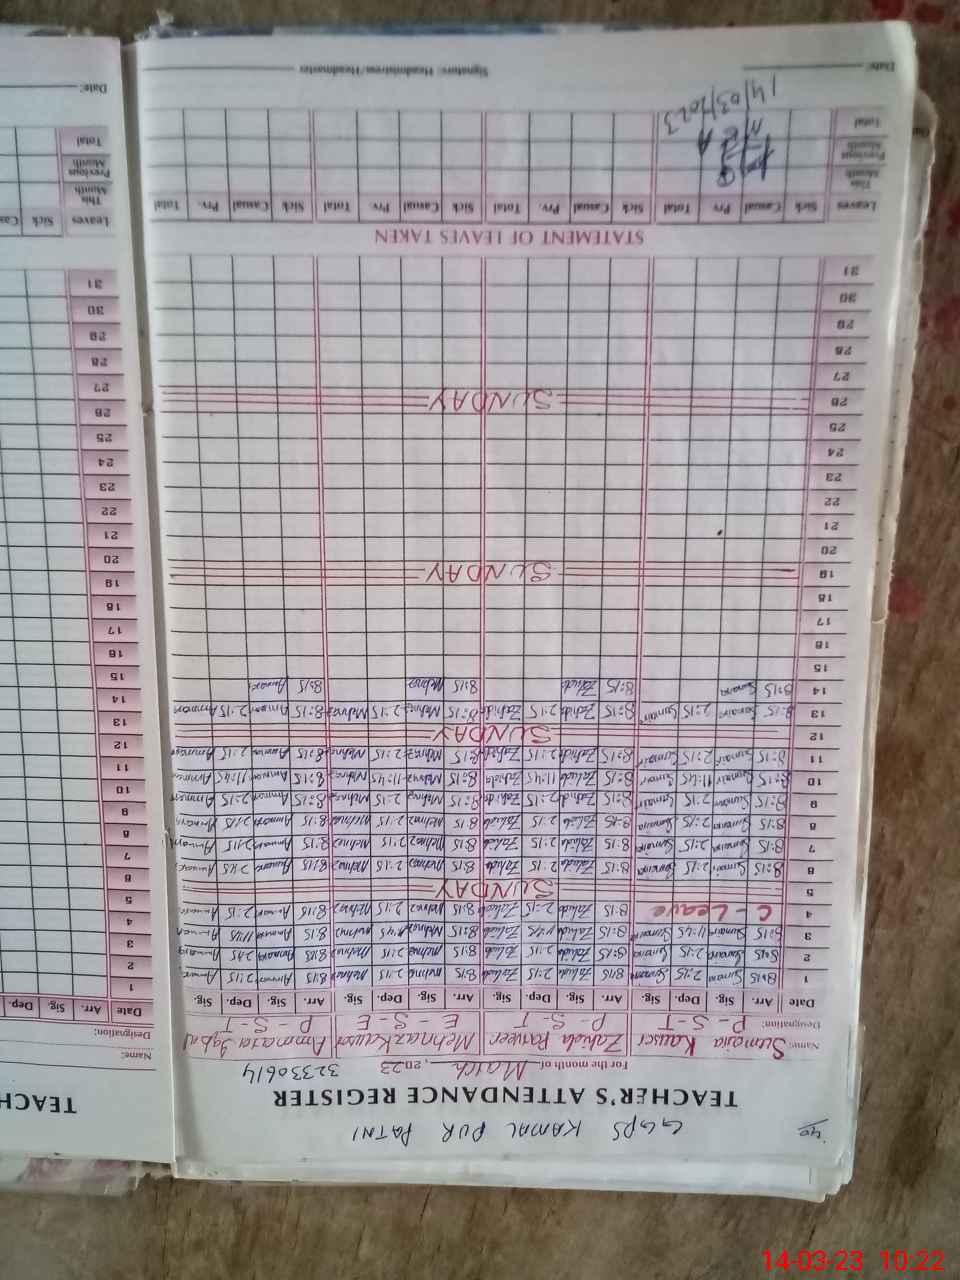 40
GGPS KAMAL PUR PATNI
TEACHER'S ATTENDANCE REGISTER
For the month of March, 2023 32330614
Name: Sumaira Kausar Zahida Parveen Mehnaz Kausar Ammara Iqbal
Designation: P-S-T P-S-T E-S-E P-S-T
Date Arr. Sig. Dep. Sig. Arr. Sig. Dep. Sig. Arr. Sig. Dep. Sig. Arr. Sig. Dep. Sig.
1 8:15 Sumaira 2:15 Sumaira 8:15 Zahida 2:15 Zahida 8:15 Mehnaz 2:15 Mehnaz 8:15 Ammara 2:15 Ammara
2 8:15 Sumaira 2:15 Sumaira 8:15 Zahida 2:15 Zahida 8:15 Mehnaz 2:15 Mehnaz 8:15 Ammara 2:15 Ammara
3 8:15 Sumaira 11:45 Sumaira 8:15 Zahida 11:45 Zahida 8:15 Mehnaz 11:45 Mehnaz 8:15 Ammara 11:45 Ammara
4 C-Leave 8:15 Zahida 2:15 Zahida 8:15 Mehnaz 2:15 Mehnaz 8:15 Ammara 2:15 Ammara
5 SUNDAY
6 8:15 Sumaira 2:15 Sumaira 8:15 Zahida 2:15 Zahida 8:15 Mehnaz 2:15 Mehnaz 8:15 Ammara 2:15 Ammara
7 8:15 Sumaira 2:15 Sumaira 8:15 Zahida 2:15 Zahida 8:15 Mehnaz 2:15 Mehnaz 8:15 Ammara 2:15 Ammara
8 8:15 Sumaira 2:15 Sumaira 8:15 Zahida 2:15 Zahida 8:15 Mehnaz 2:15 Mehnaz 8:15 Ammara 2:15 Ammara
9 8:15 Sumaira 2:15 Sumaira 8:15 Zahida 2:15 Zahida 8:15 Mehnaz 2:15 Mehnaz 8:15 Ammara 2:15 Ammara
10 8:15 Sumaira 11:45 Sumaira 8:15 Zahida 11:45 Zahida 8:15 Mehnaz 11:45 Mehnaz 8:15 Ammara 11:45 Ammara
11 8:15 Sumaira 2:15 Sumaira 8:15 Zahida 2:15 Zahida 8:15 Mehnaz 2:15 Mehnaz 8:15 Ammara 2:15 Ammara
12 SUNDAY
13 8:15 Sumaira 2:15 Sumaira 8:15 Zahida 2:15 Zahida 8:15 Mehnaz 2:15 Mehnaz 8:15 Ammara 2:15 Ammara
14 8:15 Sumaira 8:15 Zahida 8:15 Mehnaz 8:15 Ammara
15
16
17
18
19 SUNDAY
20
21
22
23
24
25
26 SUNDAY
27
28
29
30
31
STATEMENT OF LEAVES TAKEN
Leaves Sick Casual Prv. Total Sick Casual Prv. Total Sick Casual Prv. Total Sick Casual Prv. Total
This Month
Previous Month
Total
14/03/2023
Date: Signature: Headmistress/Headmaster
TEACH
Name:
Designation:
Date Arr. Sig. Dep.
1
2
3
4
5
6
7
8
9
10
11
12
13
14
15
16
17
18
19
20
21
22
23
24
25
26
27
28
29
30
31
Leaves Sick Cas
This Month
Previous Month
Total
Date:
14-03-23 10:22